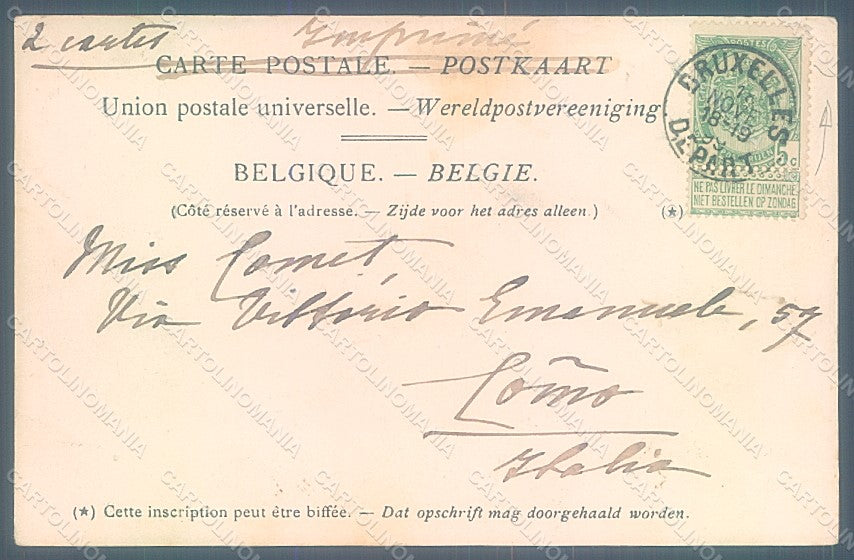 2 cartes Imprimé
CARTE POSTALE. — POSTKAART
Union postale universelle. — Wereldpostvereeniging
BELGIQUE. — BELGIE.
(Côté réservé à l'adresse. — Zijde voor het adres alleen.) (*)
POSTES
5c
NE PAS LIVRER LE DIMANCHE
NIET BESTELLEN OP ZONDAG
BRUXELLES
NOVE
18-19
DÉPART
Miss Comet,
Via Vittório Emanuele, 57
Como
Italia
(*) Cette inscription peut être biffée. — Dat opschrift mag doorgehaald worden.
CARTOLINOMANIA